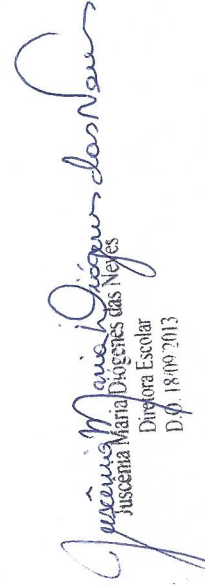 Juscênia Maria Diógenes das Neves
Juscênia Maria Diógenes das Neves
Diretora Escolar
D.O. 18/09/2013